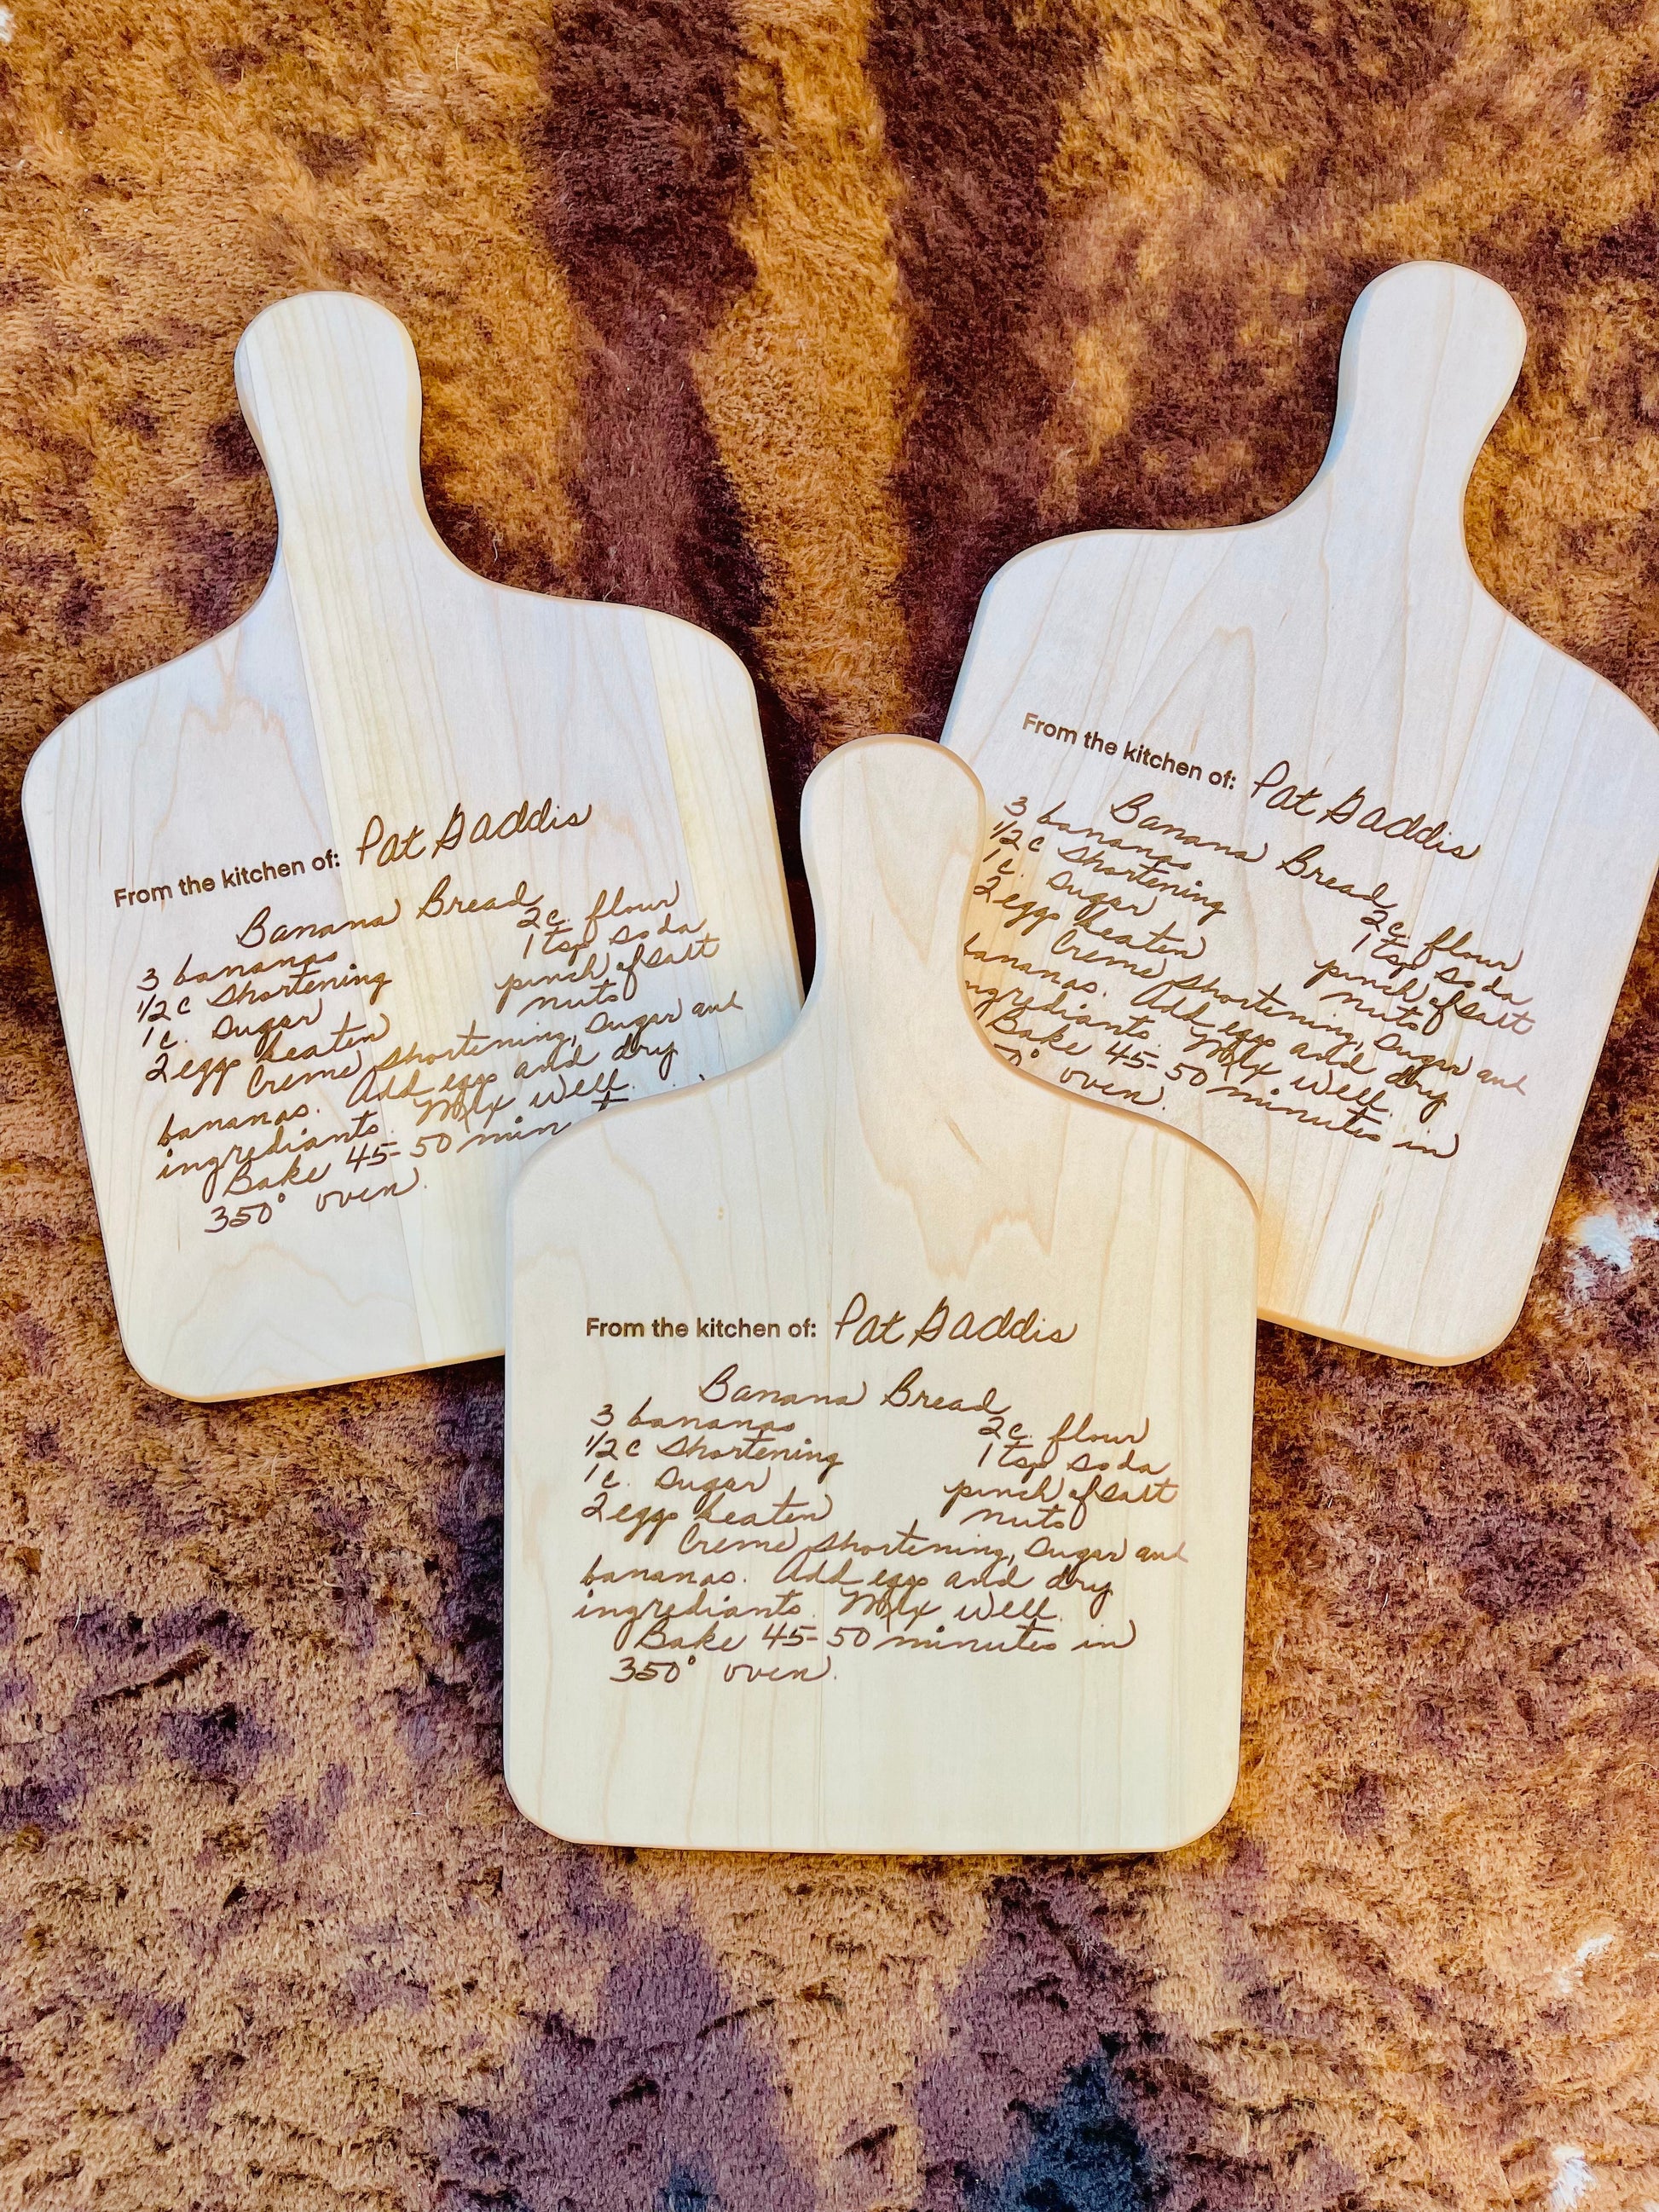 From the kitchen of: Pat Gaddis
Banana Bread
3 bananas 2c. flour
1/2 c shortening 1 tsp soda
1 c. sugar pinch of salt
2 eggs beaten nuts
Creme shortening, sugar and
bananas. Add eggs and dry
ingrediants. Mix well.
Bake 45-50 min
350° oven.
From the kitchen of: Pat Gaddis
Banana Bread
3 bananas 2c. flour
1/2 c shortening 1 tsp soda
1 c. sugar pinch of salt
2 eggs beaten nuts
Creme shortening, sugar and
bananas. Add eggs and dry
ngrediants. Mix well.
Bake 45-50 minutes in
0° oven.
From the kitchen of: Pat Gaddis
Banana Bread
3 bananas 2c. flour
1/2 c shortening 1 tsp soda
1 c. sugar pinch of salt
2 eggs beaten nuts
Creme shortening, sugar and
bananas. Add eggs and dry
ingrediants. Mix well.
Bake 45-50 minutes in
350° oven.